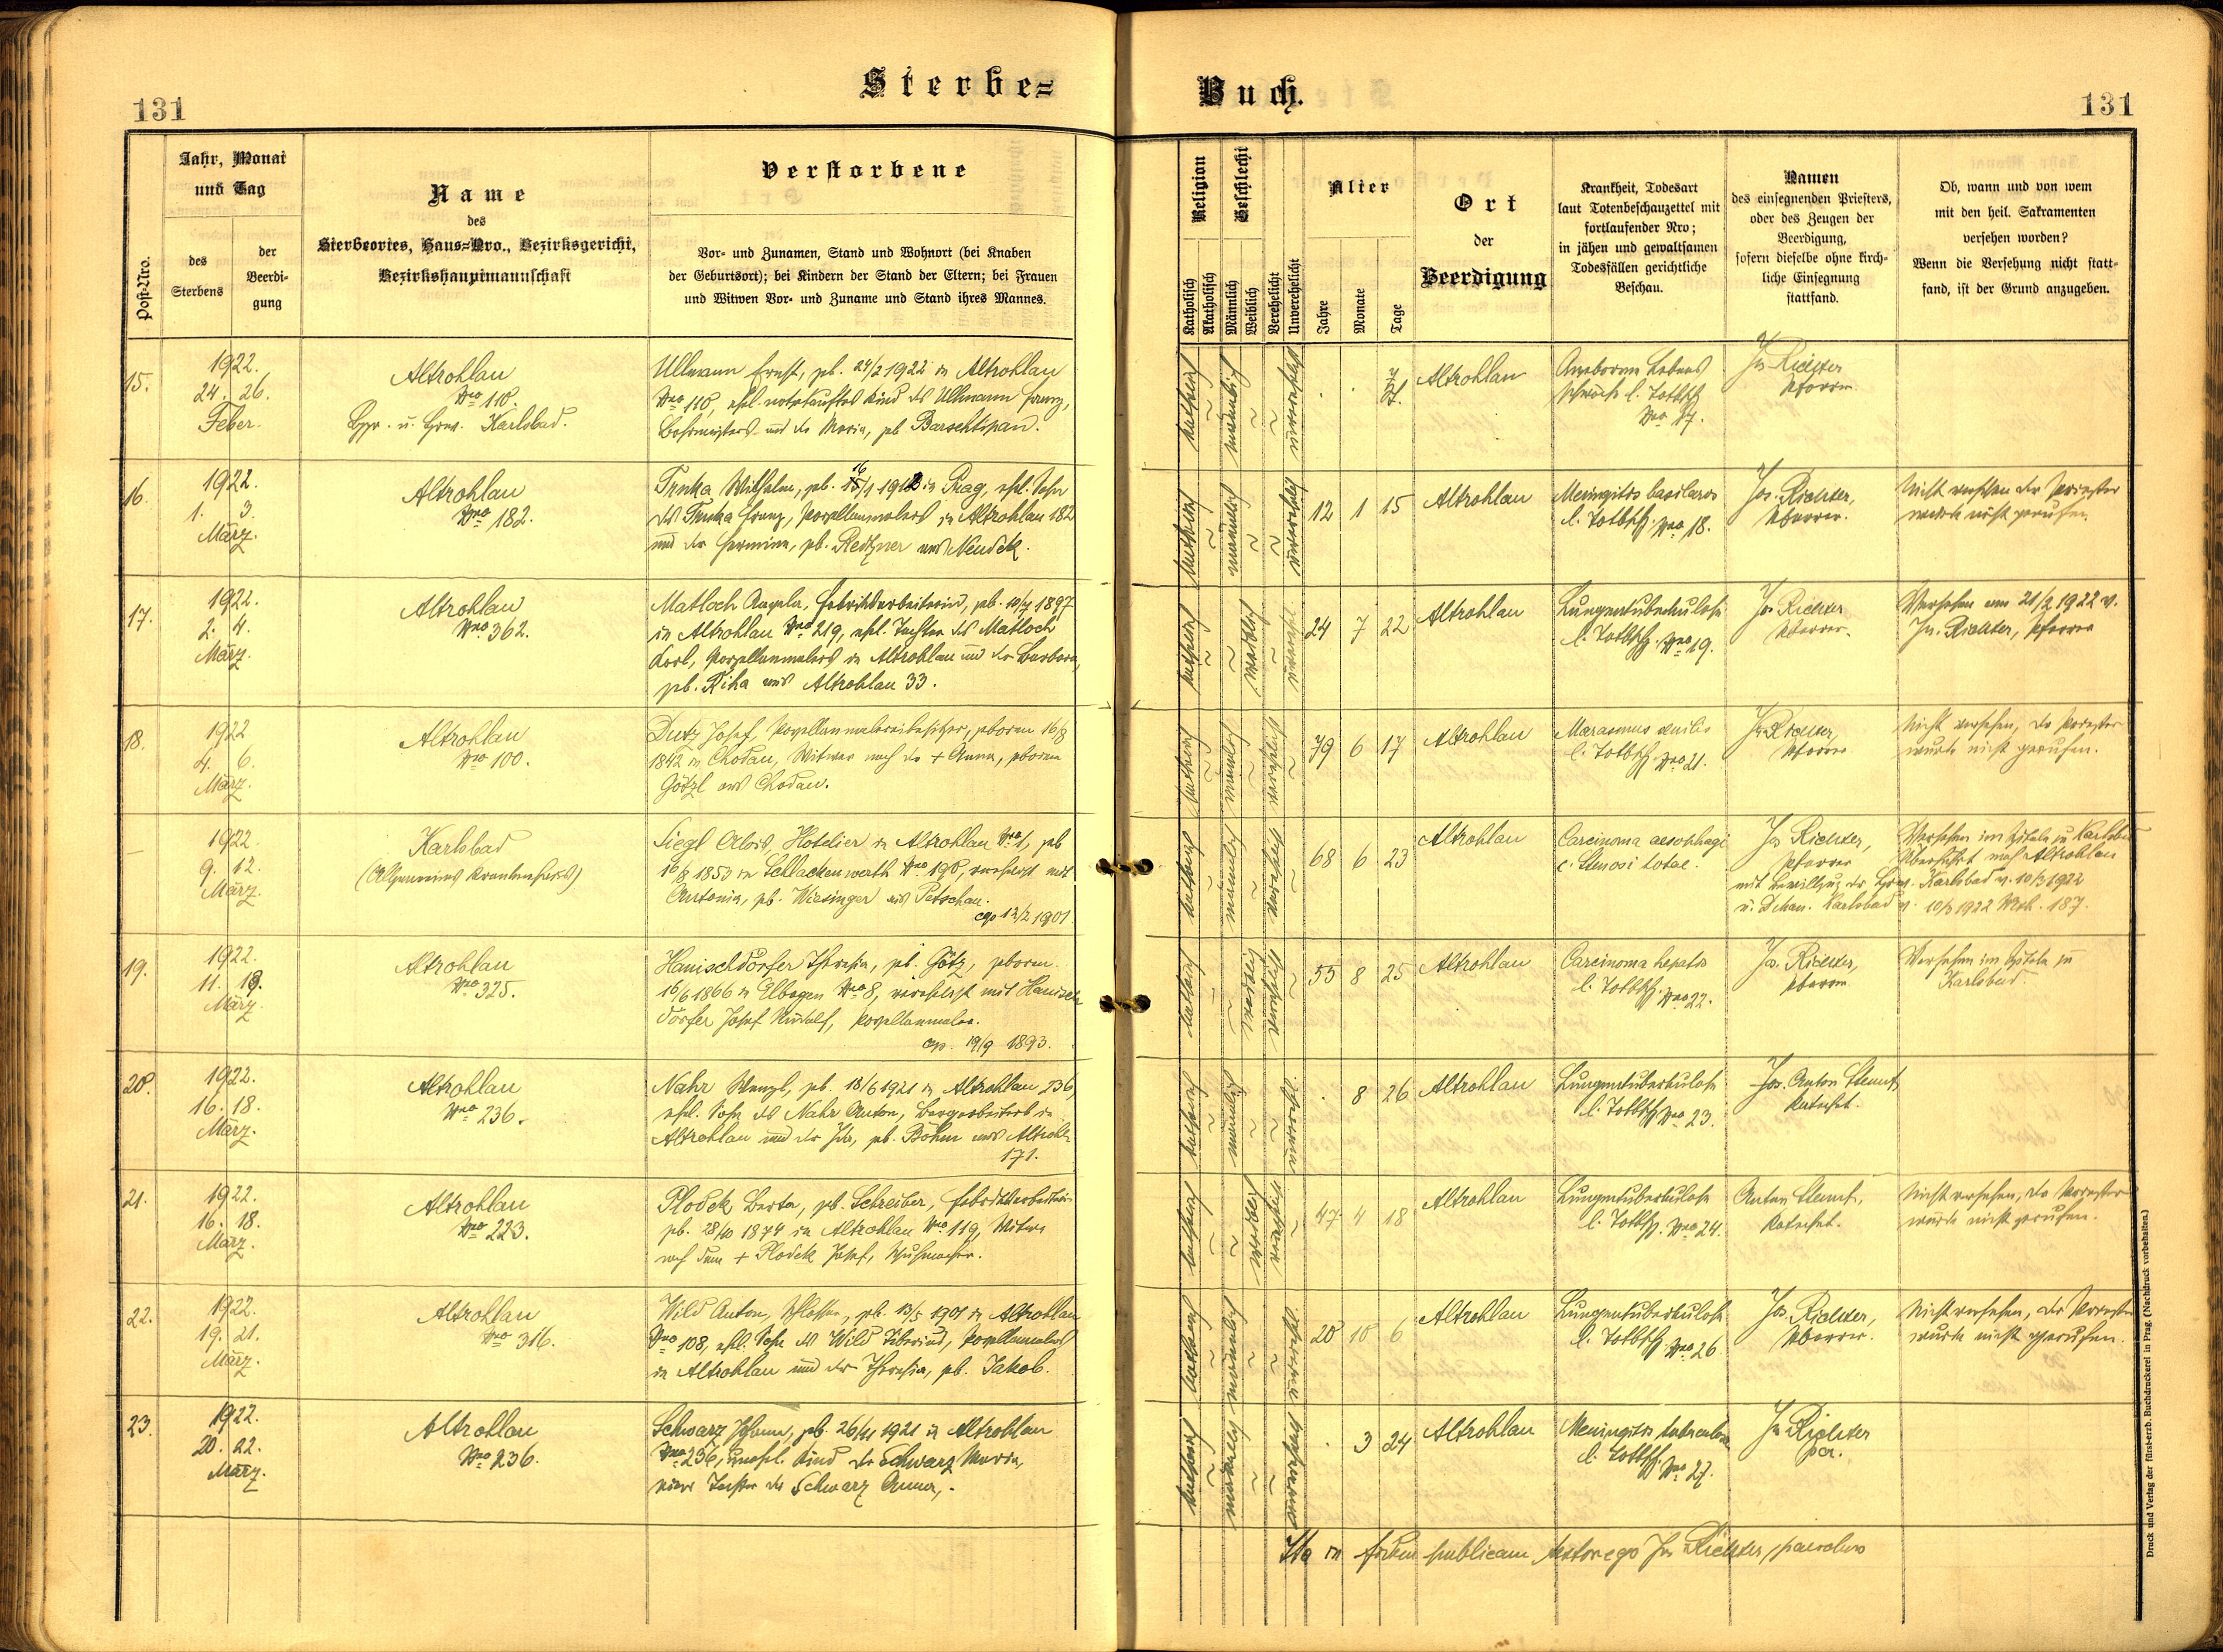 Sterbe=
Buch.
131
131
Post-Nro.
Jahr, Monat
und Tag
des
Sterbens
der
Beerdi-
gung
Name
des
Sterbeortes, Haus=Nro., Bezirksgericht,
Bezirkshauptmannschaft
Verstorbene
Vor- und Zunamen, Stand und Wohnort (bei Knaben
der Geburtsort); bei Kindern der Stand der Eltern; bei Frauen
und Witwen Vor- und Zuname und Stand ihres Mannes.
Religion
Katholisch
Akatholisch
Geschlecht
Männlich
Weiblich
Verehelicht
Unverehelicht
Alter
Jahre
Monate
Tage
Ort
der
Beerdigung
Krankheit, Todesart
laut Totenbeschauzettel mit
fortlaufender Nro;
in jähen und gewaltsamen
Todesfällen gerichtliche
Beschau.
Namen
des einsegnenden Priesters,
oder des Zeugen der
Beerdigung,
sofern dieselbe ohne kirch-
liche Einsegnung
stattfand.
Ob, wann und von wem
mit den heil. Sakramenten
versehen worden?
Wenn die Versehung nicht statt-
fand, ist der Grund anzugeben.
15.
1922.
24. 26.
Feber.
Altrohlau
Nro 110.
Karlsbad.
Ullmann Ernst, geb. 24/2 1922 in Altrohlau
Nro 110, ehel. notgetauftes Kind des Ullmann Franz,
und der Maria, geb. Barschtipan.
katholisch männlich unverehelicht
Altrohlau
Angeborene Lebens
schwäche l. Totbsch.
Nro 17.
Jos. Richter
Pfarrer
16.
1922.
1. 3.
März.
Altrohlau
Nro 182.
Trnka Wilhelm, geb. 16/1 1910 in Prag, ehel. Sohn
des Trnka Franz, Porzellanmalers in Altrohlau 182
und der Hermine, geb. Redtzner aus Neudek.
katholisch männlich unverehelicht
12 1 15
Altrohlau
Meningitis basilaris
l. Totbsch. Nro 18.
Jos. Richter,
Pfarrer.
Nicht versehen der Priester
wurde nicht gerufen.
17.
1922.
2. 4.
März.
Altrohlau
Nro 362.
Matloch Angela, Fabriksarbeiterin, geb. 10/7 1897
in Altrohlau Nro 219, ehel. Tochter des Matloch
Karl, Porzellanmalers in Altrohlau und der Barbara,
geb. Riha aus Altrohlau 33.
katholisch weiblich unverehel.
24 7 22
Altrohlau
Lungentuberkulose
l. Totbsch. Nro 19.
Jos. Richter
Pfarrer.
Versehen am 21/2 1922 v.
Jos. Richter, Pfarrer
18.
1922
4. 6.
März.
Altrohlau
Nro 100.
Dutz Josef, Porzellanmalereibesitzer, geboren 16/8
1842 in Chodau, Witwer nach der + Anna, geborene
Götzl aus Chodau.
katholisch männlich verehelicht
79 6 17
Altrohlau
Marasmus senilis
l. Totbsch. Nro 21.
Jos. Richter,
Pfarrer
Nicht versehen, der Priester
wurde nicht gerufen.
1922
9. 12.
März.
Karlsbad
(Allgemeines Krankenhaus)
Siegl Alois, Hotelier in Altrohlau Nro 1, geb
16/8 1853 in Schlackenwerth Nro 190, verehelicht mit
Antonia, geb. Wiesinger aus Petschau.
cop 12/2 1901
katholisch männlich verehelicht
68 6 23
Altrohlau
Carcinoma aesophagi
c. stenosi totae.
Jos. Richter,
Pfarrer
Versehen im Spitale zu Karlsbad
Überführt nach Altrohlau
mit Bewilligung der Karlsbad v. 10/3 1922
u. Dekan. Karlsbad v. 10/3 1922 187.
19.
1922.
11. 13.
März.
Altrohlau
Nro 325.
Hanischdörfer Theresia, geb. Götz, geboren
16/6 1866 in Elbogen Nro 8, verehelicht mit Hanisch
dörfer Josef Rudolf, Porzellanmaler.
cop. 19/9 1893.
katholisch weiblich verehelicht
55 8 25
Altrohlau
Carcinoma hepatis
l. Totbsch. Nro 22.
Jos. Richter,
Pfarrer
Versehen im Spitale zu
Karlsbad.
20.
1922.
16. 18.
März.
Altrohlau
Nro 236.
Nahr Wenzl, geb. 18/6 1921 in Altrohlau 236,
ehel. Sohn des Nahr Anton, Bergarbeiters in
Altrohlau und der Ida, geb. Böhm aus Altrohl.
171.
katholisch männlich unverehel.
8 26
Altrohlau
Lungentuberkulose
l. Totbsch. Nro 23.
Anton
Katechet.
21.
1922.
16. 18.
März.
Altrohlau
Nro 223.
Plodek Berta, geb. Schreiber, Fabriksarbeiterin
geb. 28/10 1874 in Altrohlau Nro 119, Witwe
nach dem + Plodek Josef, Schuhmacher.
katholisch weiblich verehelicht
47 4 18
Altrohlau
Lungentuberkulose
l. Totbsch. Nro 24.
Anton
Katechet.
Nicht versehen, der Priester
wurde nicht gerufen.
22.
1922.
19. 21.
März.
Altrohlau
Nro 316.
Wild Anton, Schlosser, geb. 13/5 1901 in Altrohlau
Nro 108, ehel. Sohn des Wild Tiberius, Porzellanmalers
in Altrohlau und der Theresia, geb. Jakob.
katholisch männlich unverehel.
20 10 6
Altrohlau
Lungentuberkulose
l. Totbsch. Nro 26
Jos. Richter,
Pfarrer.
Nicht versehen, der Priester
wurde nicht gerufen.
23.
1922.
20. 22.
März.
Altrohlau
Nro 236.
Schwarz Johann, geb. 26/11 1921 in Altrohlau
Nro 236, unehel. Kind der Schwarz Maria,
einer Tochter der Schwarz Anna.
katholisch männlich unverehelicht
3 24
Altrohlau
Meningitis tuberculosa
l. Totbsch. Nro 27.
Jos. Richter
Pfr.
Ita in fidem publicam testor ego Jos. Richter, parochus
Druck und Verlag der fürst-erzb. Buchdruckerei in Prag. (Nachdruck vorbehalten.)